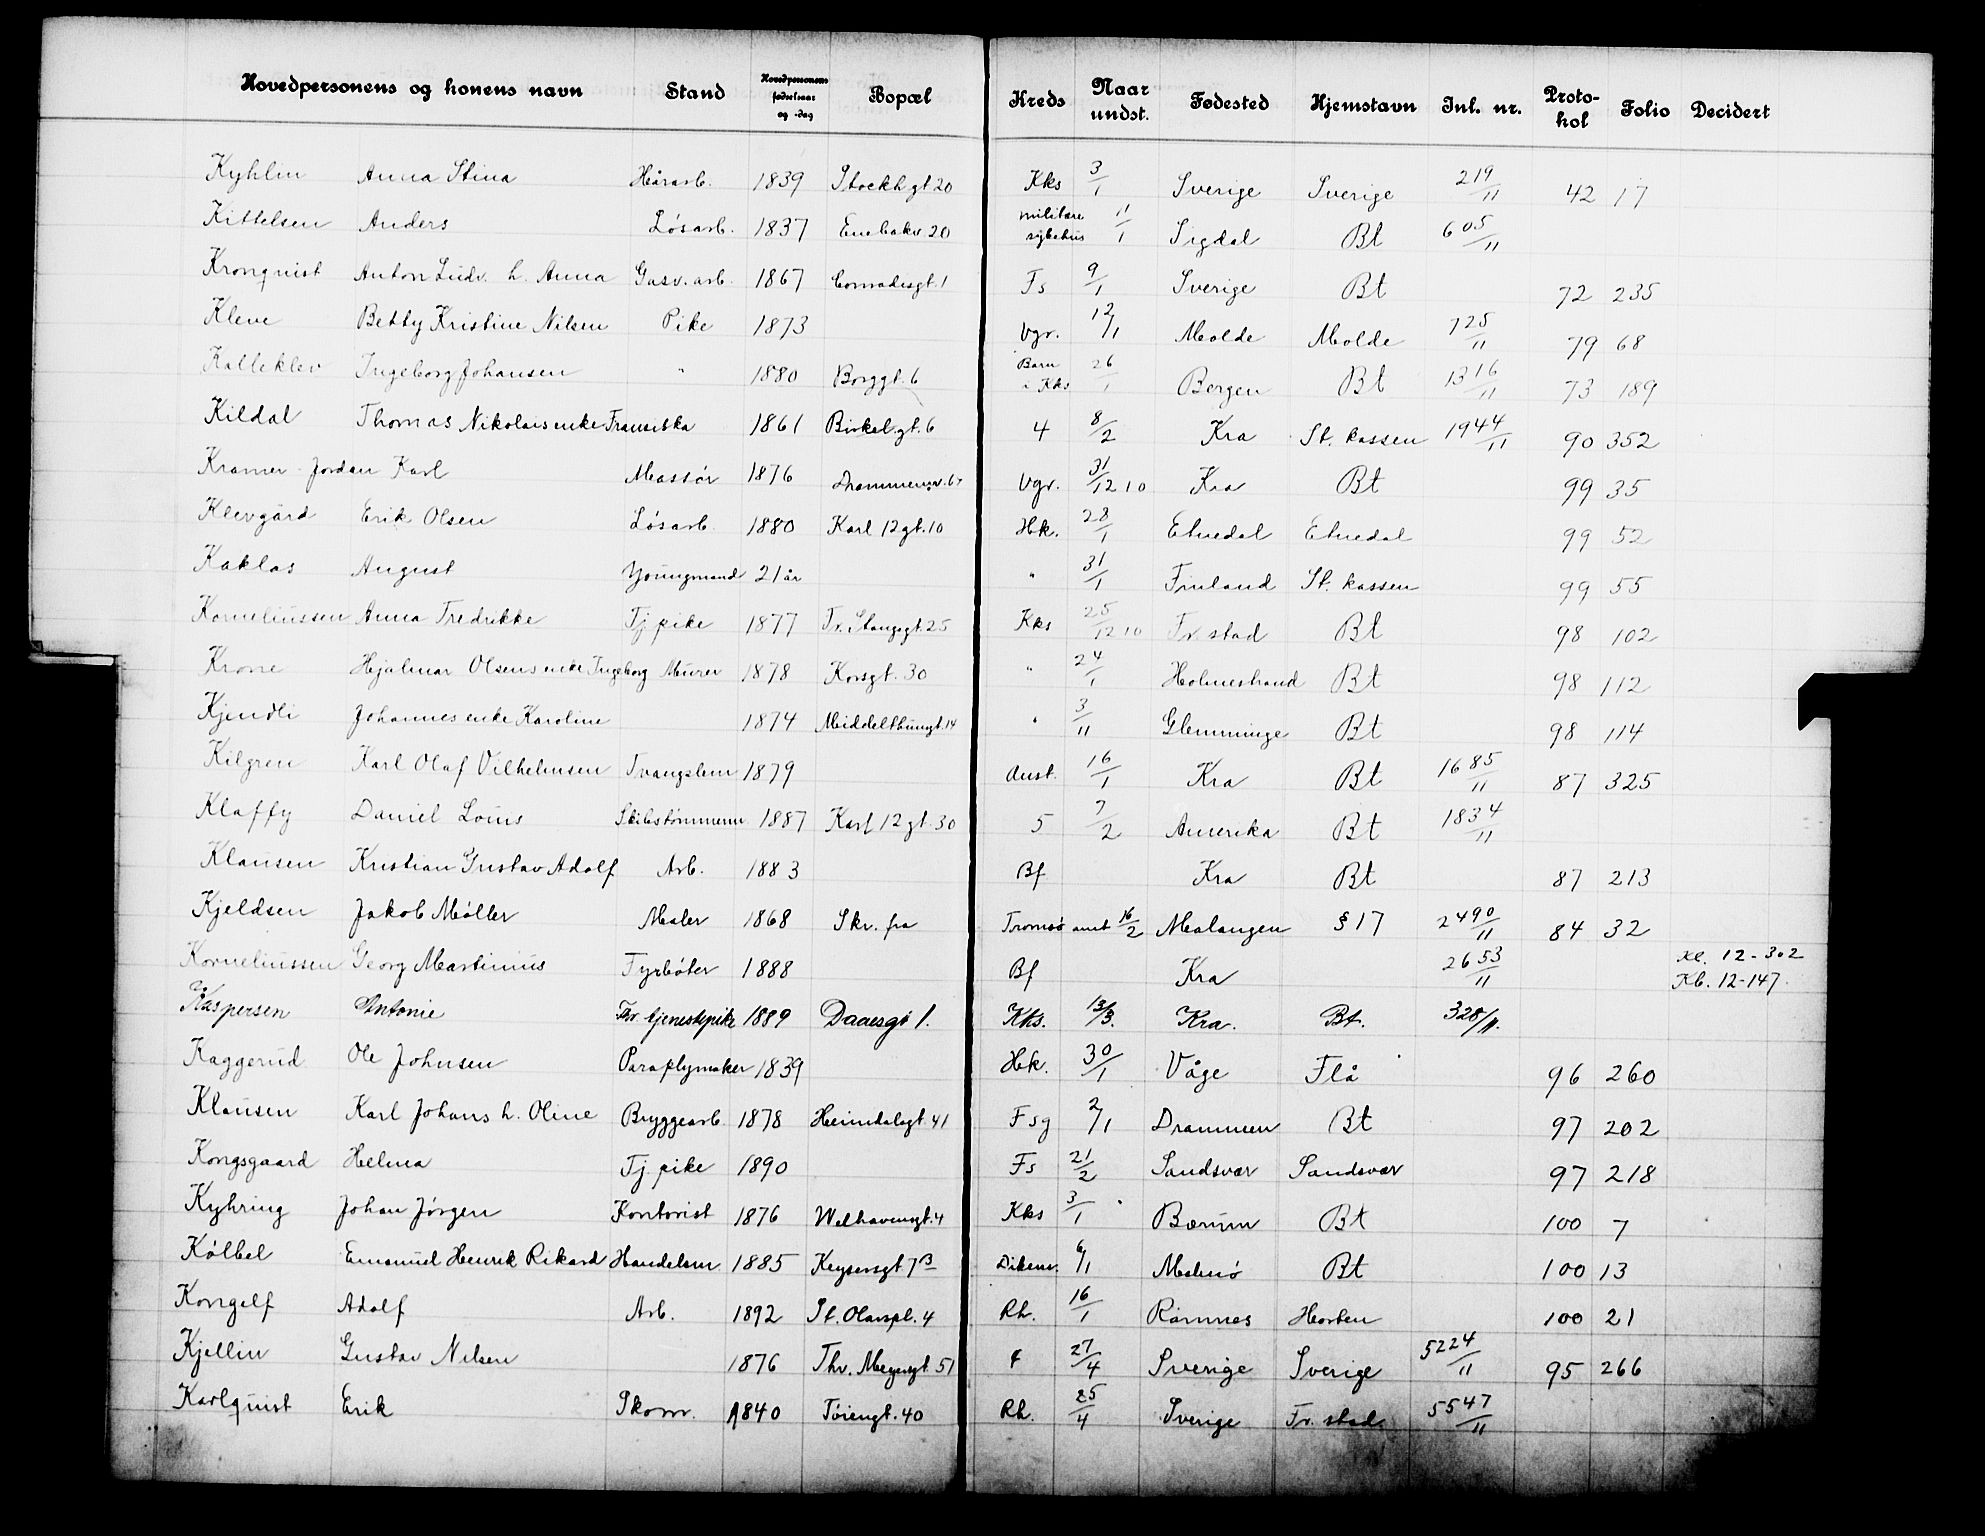 Hovedpersonens og konens navn Stand Hovedpersonens fødselsaar og -dag Bopæl Kreds Naar undst. Fødested Hjemstavn Inl. nr. Protokol Folio Decidert
Kyhlin Anna Stina Hårarb. 1839 Stockh.gt 20 Kks 3/1 Sverige Sverige 219/11 42 17
Kittelsen Anders Løsarb. 1837 Enebakv. 20 militære sykehus 11/1 Sigdal Bt 605/11
Kronquist Anton Ludv. h. Anna Gasv. arb. 1867 Conradisgt. 1 Fs 9/1 Sverige Bt 72 235
Kleve Betty Kristine Nilsen Pike 1873 Vgr. 12/1 Molde Molde 725/11 79 68
Kalleklev Ingeborg Johansen " 1880 Borggt. 6 Barn i Kks 26/1 Bergen Bt 1316/11 73 189
Kildal Thomas Nikolais enke Fransiska 1861 Birkel.gt. 6 4 8/2 Kra St. kassen 1944/11 90 352
Kramer-Jordan Karl Massør 1876 Drammensv. Vgr. 31/12 10 Kra Bt 99 35
Klevgård Erik Olsen Løsarb. 1880 Karl 12 gt. 10 Hk. 28/1 Etnedal Etnedal 99 52
Kaklas August Youngmand 21 år " 31/1 Finland St. kassen 99 55
Korneliussen Anna Fredrikke Tj. pike 1877 Fr. Stangsgt. 25 Kks 25/12 10 Fr. stad Bt 98 102
Krone Hjalmar Olsens enke Ingeborg Murer 1878 Korsgt. 30 " 24/1 Holmestrand Bt 98 112
Kjendli Johannes enke Karoline 1874 Middelthunsgt. 14 " 3/11 Glemminge Bt 98 114
Kilgren Karl Olaf Vilhelmsen Tvangslem 1879 Anst. 16/1 Kra Bt 1685/11 87 325
Klaffy Daniel Louis Skibstømmerm. 1887 Karl 12 gt. 30 5 7/2 Amerika Bt 1834/11
Klausen Kristian Gustav Adolf Arb. 1883 Bf Kra Bt 87 213
Kjeldsen Jakob Møller Maler 1868 Skr. fra Tromsø amt 16/2 Malangen § 17 2490/11 84 32
Korneliussen Georg Martinius Fyrbøter 1888 Bf Kra 2653/11 Kl. 12-302
Kb. 12-147
Kaspersen Antonie Fhv. tjenestepike 1889 Daaesgt 1. Kks. 13/3. Kra. Bt. 328/11.
Kaggerud Ole Johnsen Paraplymaker 1839 Hk. 30/1 Våge Flå 96 260
Klausen Karl Johans h. Oline Bryggearb. 1878 Heimdalsgt. 41 Fsg 2/1 Drammen Bt 97 202
Kongsgaard Helma Tj. pike 1890 Fs 21/2 Sandsvær Sandsvær 97 218
Kyhring Johan Jørgen Kontorist 1876 Welhavensgt. 4 Kks 3/1 Bærum Bt 100 7
Kølbel Emanuel Henrik Rikard Handelsm. 1885 Keysersgt 7B Dikem. 6/1 Malmø Bt 100 13
Kongelf Adolf Arb. 1892 St. Olavspl. 4 Rh. 16/1 Ramnes Horten 100 21
Kjellin Gustav Nilsen 1876 Thv. Meyersgt. 51 F 27/4 Sverige Sverige 5224/11 95 266
Karlquist Erik Skom. 1840 Tøiengt. 40 Rh. 25/4 Sverige Fr. stad 5547/11